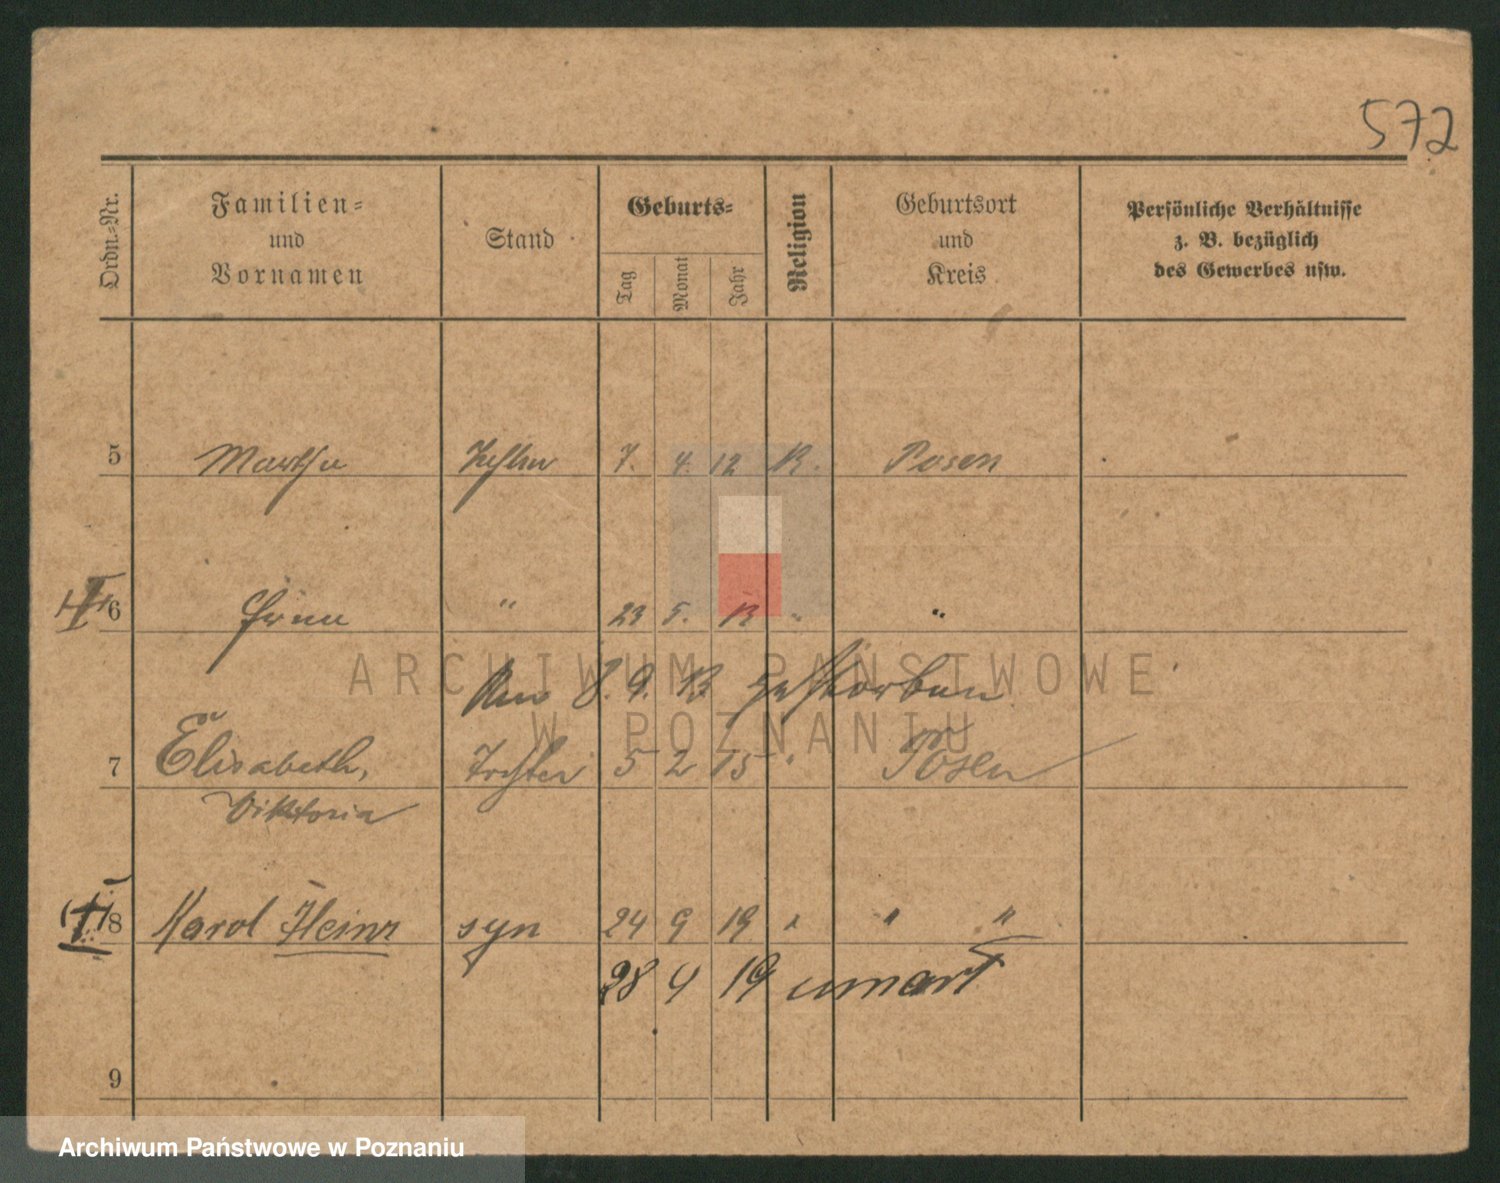 572
Ordn.-Nr.
Familien-
und
Vornamen
Stand
Geburts-
Tag
Monat
Jahr
Religion
Geburtsort
und
Kreis
Persönliche Verhältnisse
z. B. bezüglich
des Gewerbes usw.
5 Martha 7. 4. 12 K. Posen
6 " 23 5. 13 " "
8. 9. 13 gestorben
7 Elisabeth, Tochter 5 2 15 " Posen
Viktoria
8 Karol Heinr syn 24 9 19 " " "
28 4 19 umarł
9
ARCHIWUM PAŃSTWOWE
W POZNANIU
Archiwum Państwowe w Poznaniu